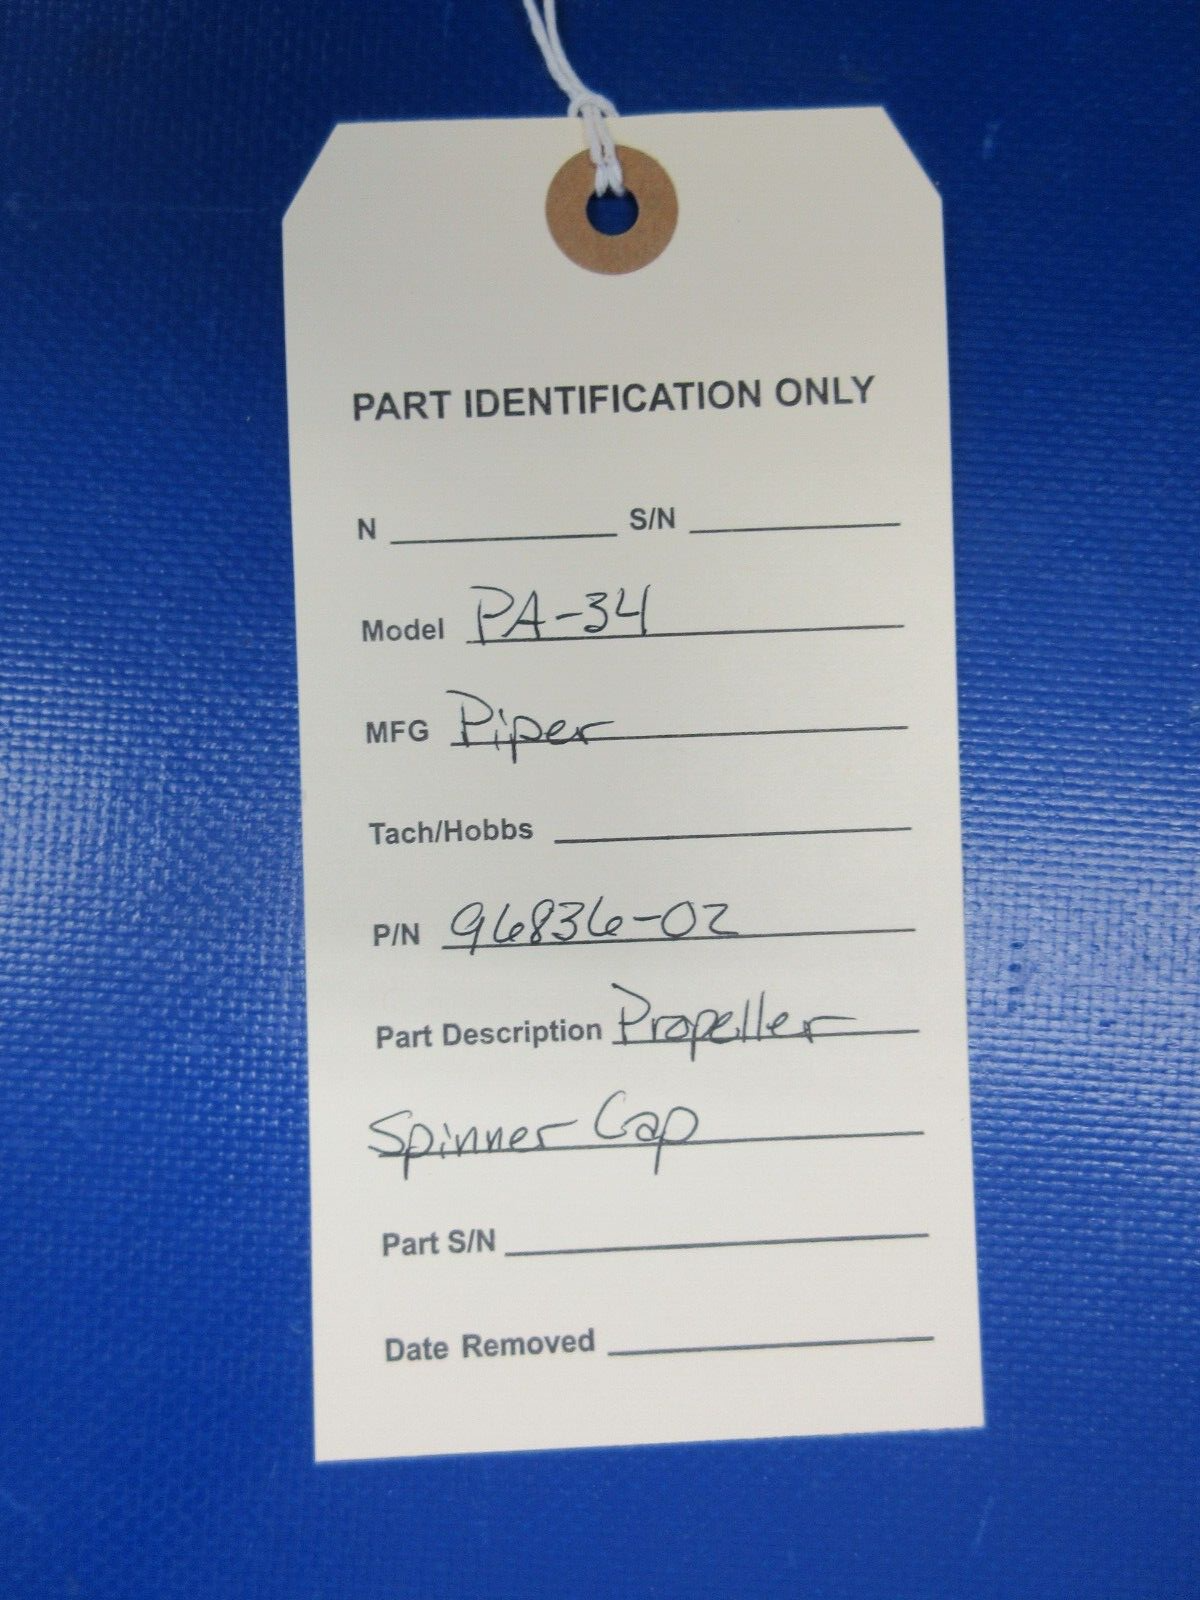 PART IDENTIFICATION ONLY
N S/N
Model PA-34
MFG Piper
Tach/Hobbs
P/N 96836-02
Part Description Propeller
Spinner Cap
Part S/N
Date Removed